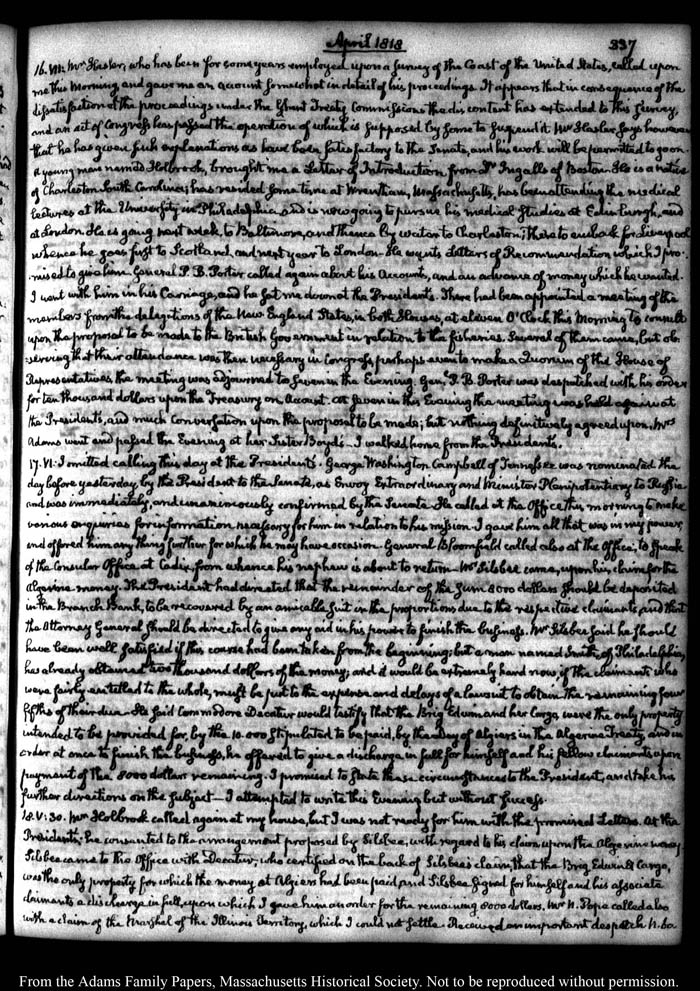 April 1818
337
16. VI. Mr. Hasler, who has been for some years employed upon a survey of the Coast of the United States, called upon
me this Morning and gave me an account somewhat in detail of his proceedings. It appears that in consequence of the
dissatisfaction at the proceedings under the Ghent Treaty Commissions the discontent has extended to this survey,
and an act of Congress has passed the operation of which is supposed by some to suspend it. Mr Hasler says however
that he has given such explanations as have been satisfactory to the Senate, and his work will be permitted to go on.
A young man named Holbrook, brought me a Letter of Introduction from Dr Ingalls of Boston. He is a native
of Charleston South Carolina; has resided some time at Wrentham, Massachusetts, has been attending the medical
lectures at the University in Philadelphia, and is now going to pursue his medical Studies at Edinburgh, and
at London. He is going next week, to Baltimore, and thence by water to Charleston; there to embark for Liverpool
whence he goes first to Scotland, and next year to London. He wants Letters of Recommendation which I pro-
mised to give him. General P. B. Porter called again about his Account, and an advance of money which he wanted.
I went with him in his Carriage, and he set me down at the Presidents. There had been appointed a meeting of the
members from the delegations of the New England States, in both Houses, at eleven O'Clock this Morning to consult
upon the proposal to be made to the British Government in relation to the fisheries. Several of them came, but ob-
serving that their attendance was then necessary in Congress, perhaps even to make a Quorum of the House of
Representatives, the meeting was adjourned to seven in the Evening. Genl. P. B. Porter was despatched with his order
for ten thousand dollars upon the Treasury on Account. At seven in the Evening the meeting was held again at
the Presidents, and much Conversation upon the proposal to be made; but nothing definitively agreed upon. Mrs
Adams went and passed the Evening at her Sister Boyd's—I walked home from the Presidents.
17. VI. I omitted calling this day at the Presidents. George Washington Campbell of Tennessee was nominated the
day before yesterday, by the President to the Senate, as Envoy Extraordinary and Minister Plenipotentiary to Russia
and was immediately, and unanimously confirmed by the Senate. He called at the Office this morning to make
various enquiries for information necessary for him in relation to his mission. I gave him all that was in my power,
and offered him any thing further for which he may have occasion. General Bloomfield called also at the Office, to speak
of the Consular Office at Cadiz, from whence his nephew is about to return—Mr Silsbee came, upon his claim for the
Algerine money. The President had directed that the remainder of the sum 8000 dollars should be deposited
in the Branch Bank, to be recovered by an amicable suit in the proportions due to the respective claimants, and that
the Attorney General should be directed to give any aid in his power to finish the business. Mr Silsbee said he should
have been well satisfied if this course had been taken from the beginning; but a man named Smith, of Philadelphia,
has already obtained two thousand dollars of the money; and it would be extremely hard now, if the claimants who
were fairly entitled to the whole, must be put to the expense and delays of a lawsuit to obtain the remaining four
fifths of their due—He said Commodore Decatur would testify that the Brig Edwin and her Cargo, were the only property
intended to be provided for, by the 10.000 stipulated to be paid, by the Dey of Algiers in the Algerine Treaty, and in
order at once to finish the business, he offered to give a discharge in full for himself and his fellow claimants upon
payment of the 8000 dollars remaining. I promised to state these circumstances to the President, and take his
further directions on the subject—I attempted to write this Evening but without success.
18. V:30. Mr Holbrook called again at my house, but I was not ready for him with the promised Letters. At the
Presidents; he consented to the arrangement proposed by Silsbee, with regard to his claim upon the Algerine money
Silsbee came to the Office with Decatur, who certified on the back of Silsbee's claim, that the Brig Edwin & Cargo,
was the only property for which the money at Algiers had been paid, and Silsbee signed for himself and his associate
claimants a discharge in full, upon which I gave him an order for the remaining 8000 dollars. Mr N. Pope called also
with a claim of the Marshal of the Illinois Territory, which I could not settle. Received an important despatch N. 62
From the Adams Family Papers, Massachusetts Historical Society. Not to be reproduced without permission.